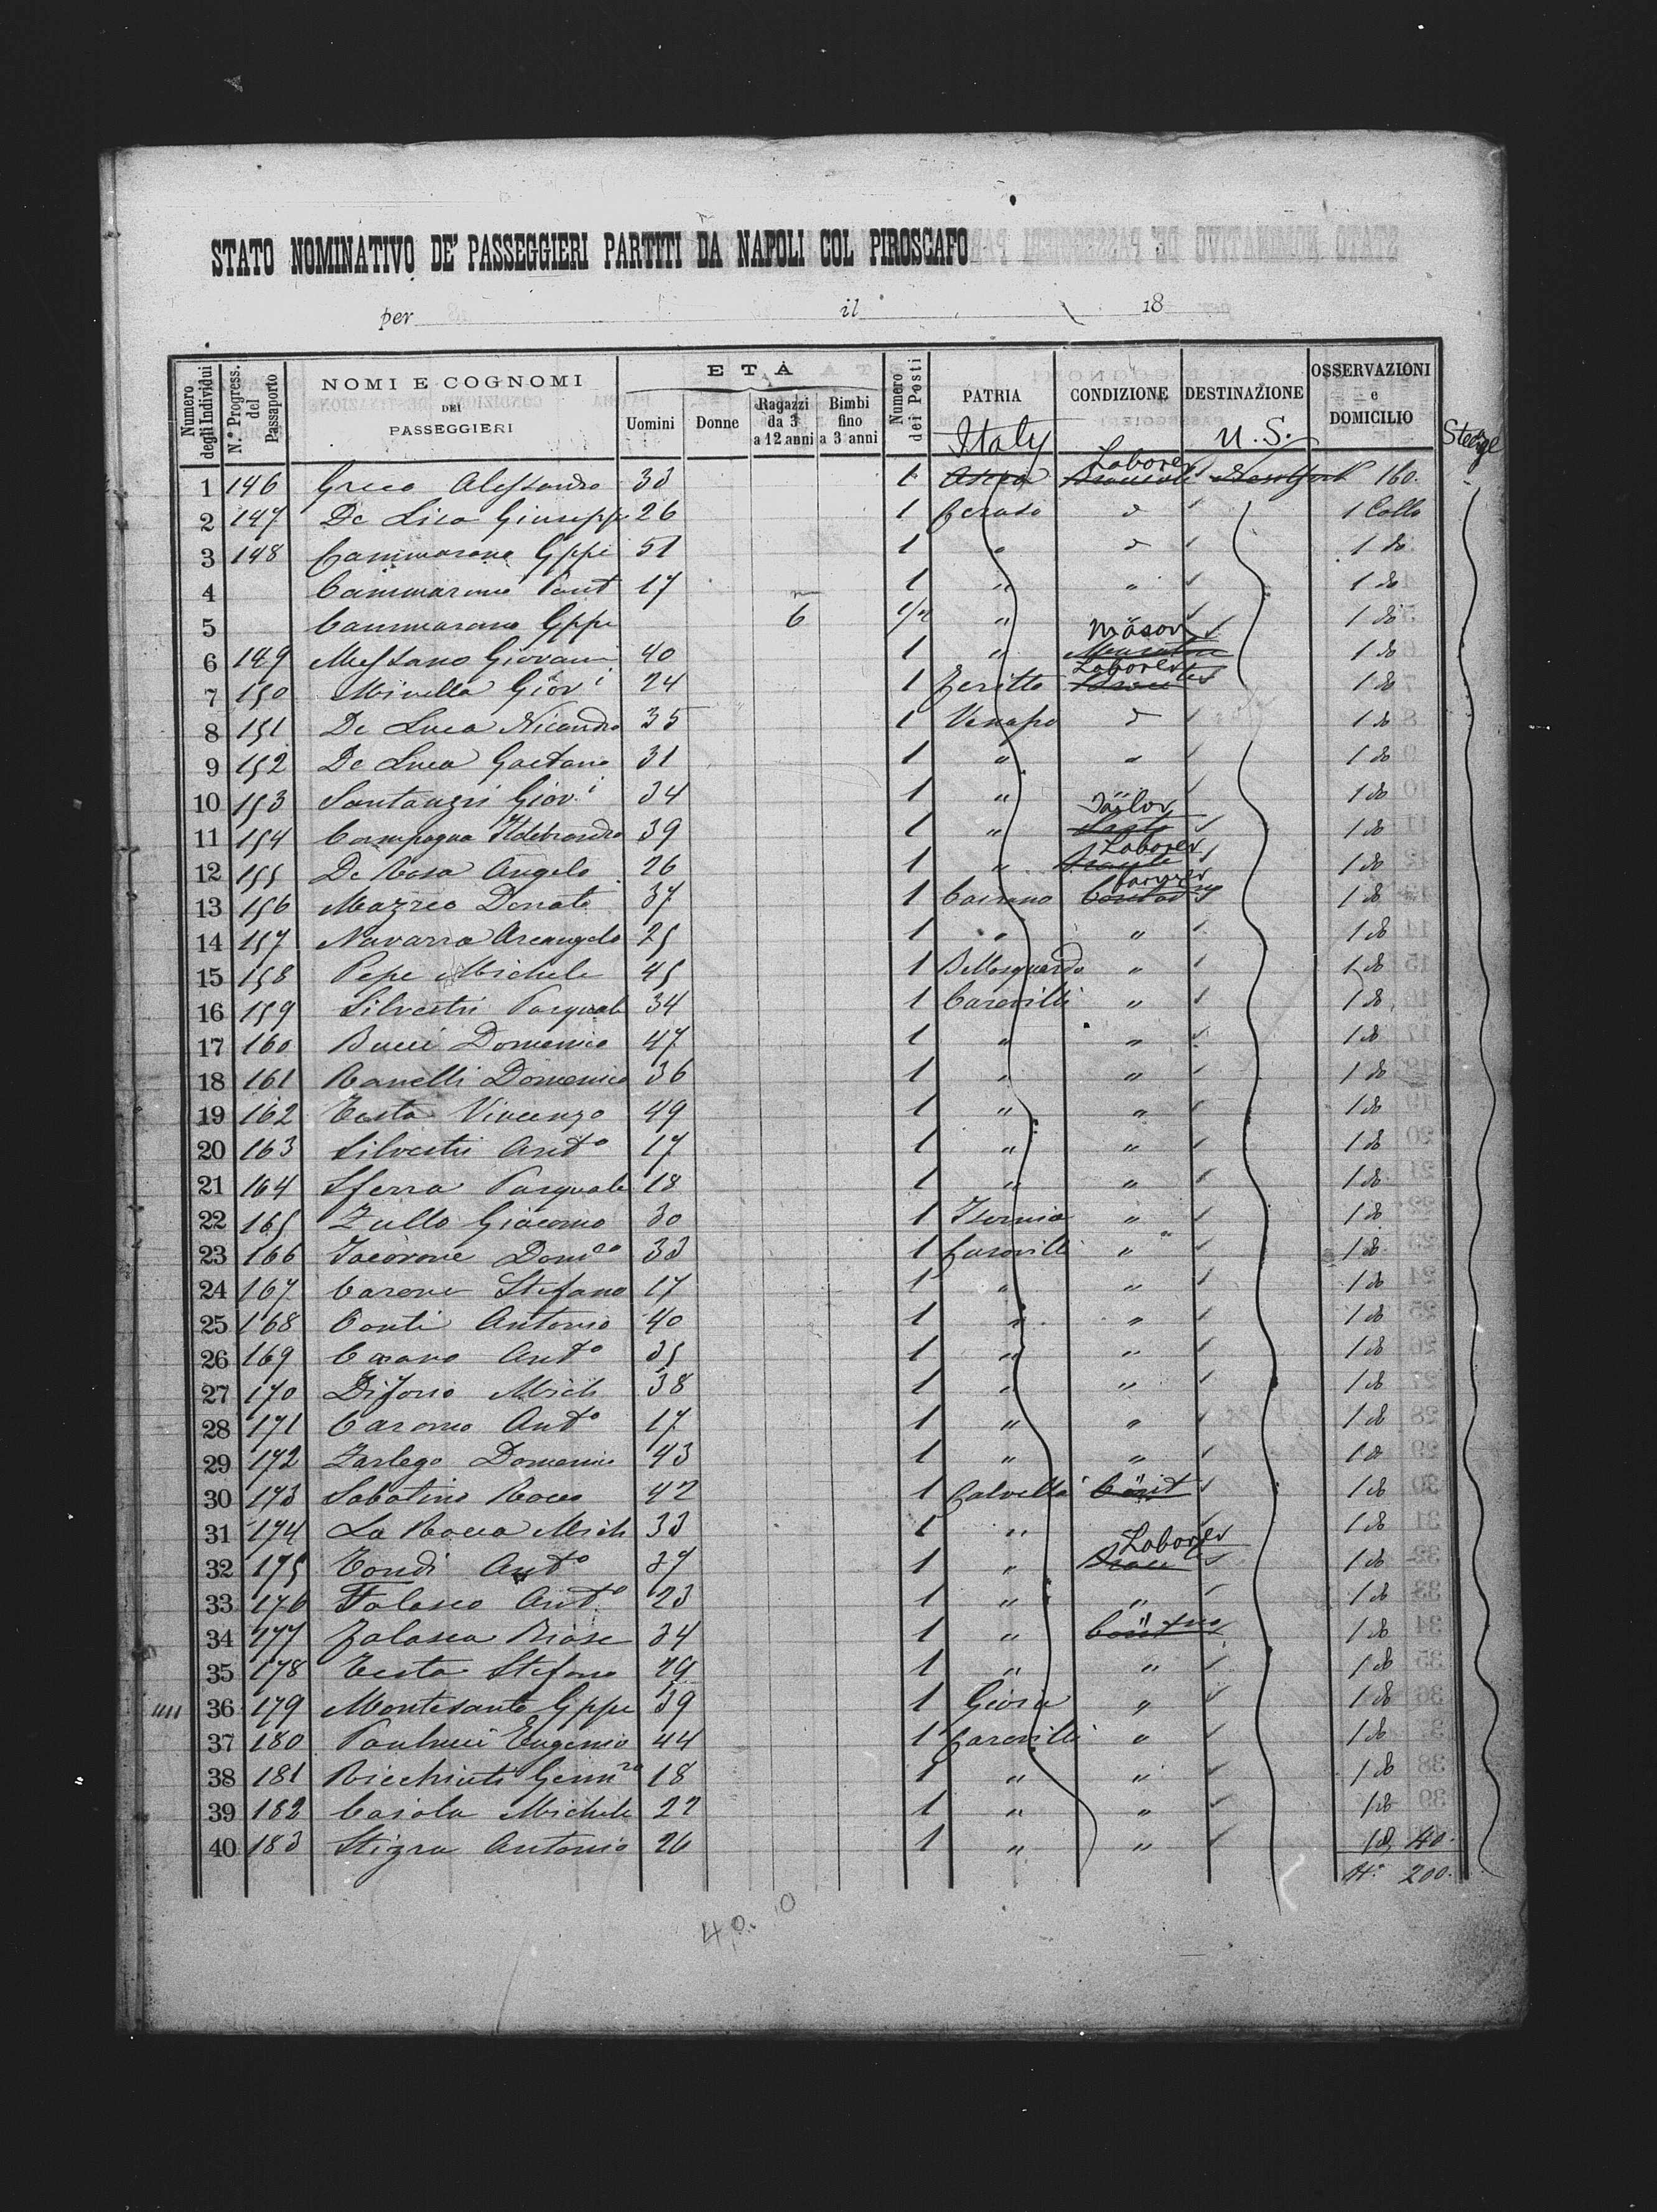 STATO NOMINATIVO DE' PASSEGGIERI PARTITI DA NAPOLI COL PIROSCAFO
per il 18
Numero degli Individui N.º Progress. del Passaporto NOMI E COGNOMI DEI PASSEGGIERI ETÀ Uomini Donne Ragazzi da 3 a 12 anni Bimbi fino a 3 anni Numero dei Posti PATRIA CONDIZIONE DESTINAZIONE OSSERVAZIONI e DOMICILIO
Italy U.S.
1 146 Greco Alessandro 33 1 Laborer 160.
2 147 De Lisa Giuseppe 26 1 Ceraso d 1 Collo
3 148 Cammarano Gppe 51 1 " d 1 do
4 Cammarano 17 1 " " 1 do
5 Cammarano Gppe 6 1/2 " 1 do
6 149 Messano Giovanni 40 1 " Mason 1 do
7 150 Minella Giovi 24 1 Laborer 1 do
8 151 De Luca Nicandro 35 1 Venafro d 1 do
9 152 De Luca Gaetano 31 1 " " 1 do
10 153 Giovi 34 1 " " 1 do
11 154 Campagna Ildebrando 39 1 " Tailor 1 do
12 155 De Rosa Angelo 26 1 " Laborer 1 do
13 156 Mazzeo Donato 37 1 Cairano farmer 1 do
14 157 Navarra Arcangelo 25 1 " " 1 do
15 158 Pepe Michele 45 1 Bellosguardo " 1 do
16 159 Silvestri Pasquale 34 1 Carovilli " 1 do
17 160 Bucci Domenico 47 1 " " 1 do
18 161 Ranelli Domenico 36 1 " " 1 do
19 162 Testa Vincenzo 49 1 " " 1 do
20 163 Silvestri Anto 17 1 " " 1 do
21 164 Sferra Pasquale 18 1 " " 1 do
22 165 Zullo Giacomo 30 1 Isernia " 1 do
23 166 Iacovone Domco 33 1 Carovilli " 1 do
24 167 Carone Stefano 17 1 " " 1 do
25 168 Conti Antonio 40 1 " " 1 do
26 169 Anto 35 1 " " 1 do
27 170 Di Iorio Mich 38 1 " " 1 do
28 171 Anto 17 1 " " 1 do
29 172 Zarlego Domenico 43 1 " " 1 do
30 173 Sabatino Rocco 42 1 Calvello 1 do
31 174 La Rocca Mich 33 1 " 1 do
32 175 Anto 37 1 " Laborer 1 do
33 176 Anto 23 1 " " 1 do
34 177 34 1 " 1 do
35 178 Testa Stefano 29 1 " " 1 do
36 179 Montesanto Gppe 39 1 " 1 do
37 180 Paolucci Eugenio 44 1 Carovilli " 1 do
38 181 Ricchiuti Gennro 18 1 " " 1 do
39 182 Casola Michele 22 1 " " 1 do
40 183 Antonio 26 1 " " 1 do 40.
200.